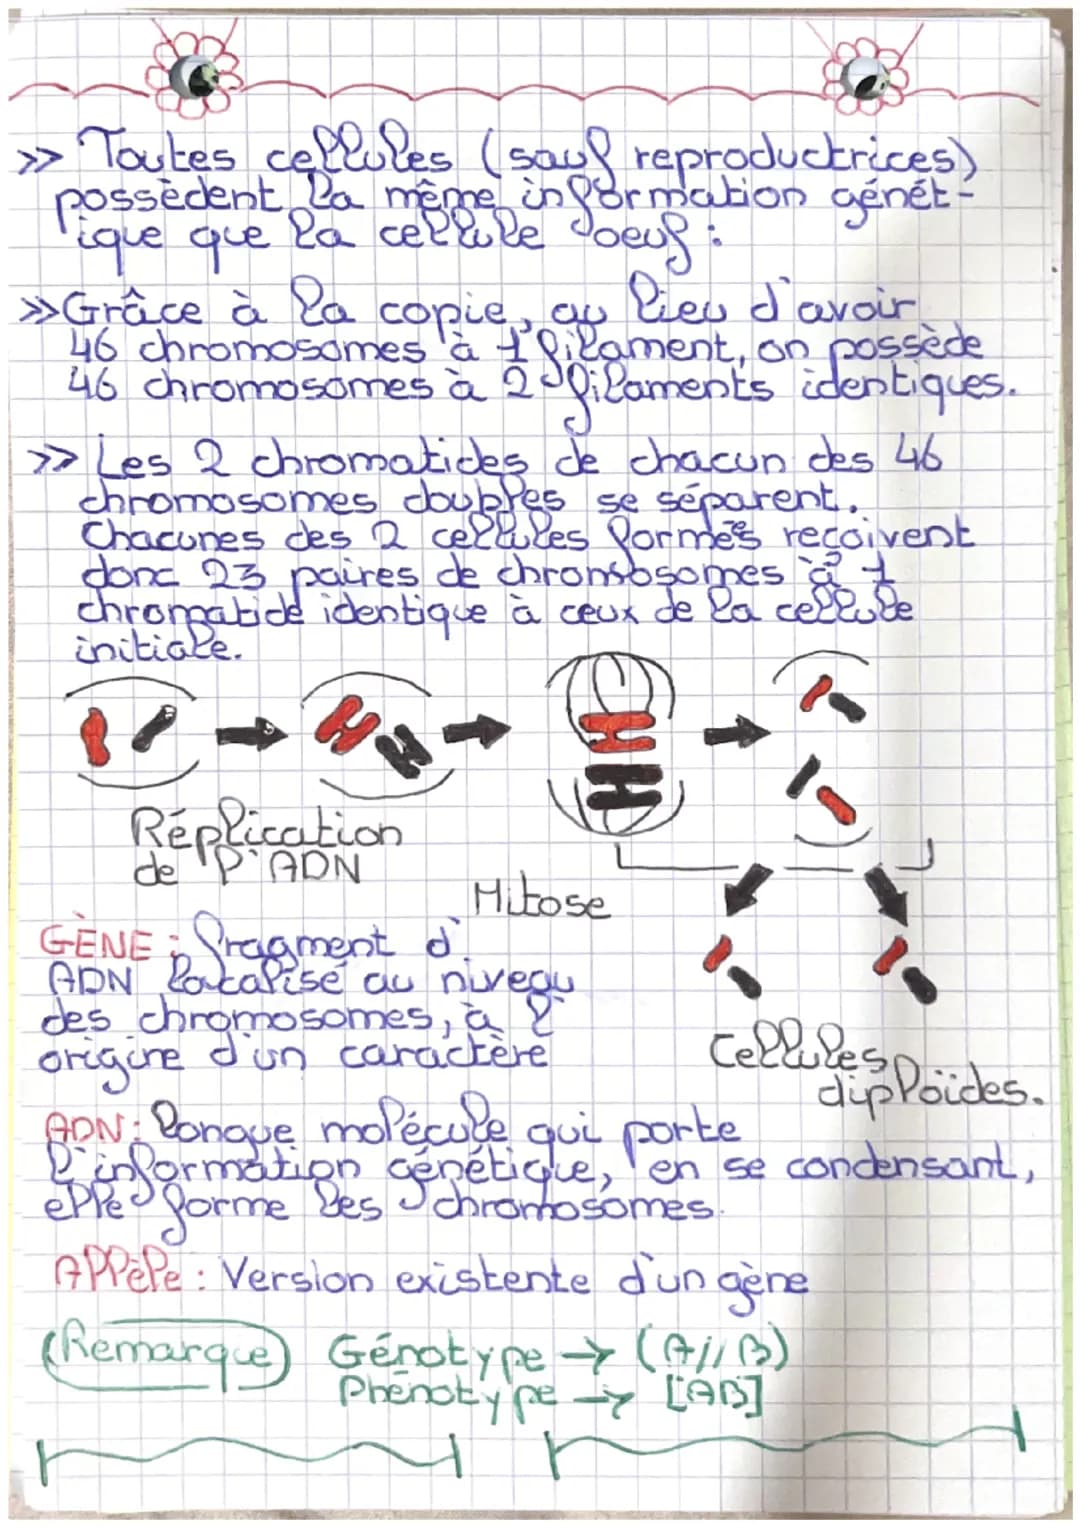 >> Toutes cellules (sauf reproductrices)
possèdent la même information génét-
ique que la cellule oeuf :
>> Grâce à la copie, au lieu d'avoir
46 chromosomes à 1 filament, on possède
46 chromosomes à 2 filaments identiques.
>> Les 2 chromatides de chacun des 46
chromosomes doubles se séparent.
Chacunes des 2 cellules formés reçoivent
donc 23 paires de chromosomes à 1
chromatide identique à ceux de la cellule
initiale.
Réplication
de l'ADN
Mitose
GÈNE : fragment d'
ADN localisé au niveau
des chromosomes, à l'
origine d'un caractère
Cellules
diploïdes.
ADN : longue molécule qui porte
l'information génétique, en se condensant,
elle forme les chromosomes.
Allèle : Version existente d'un gène
Remarque Génotype → (A//B)
Phénotype → [AB]